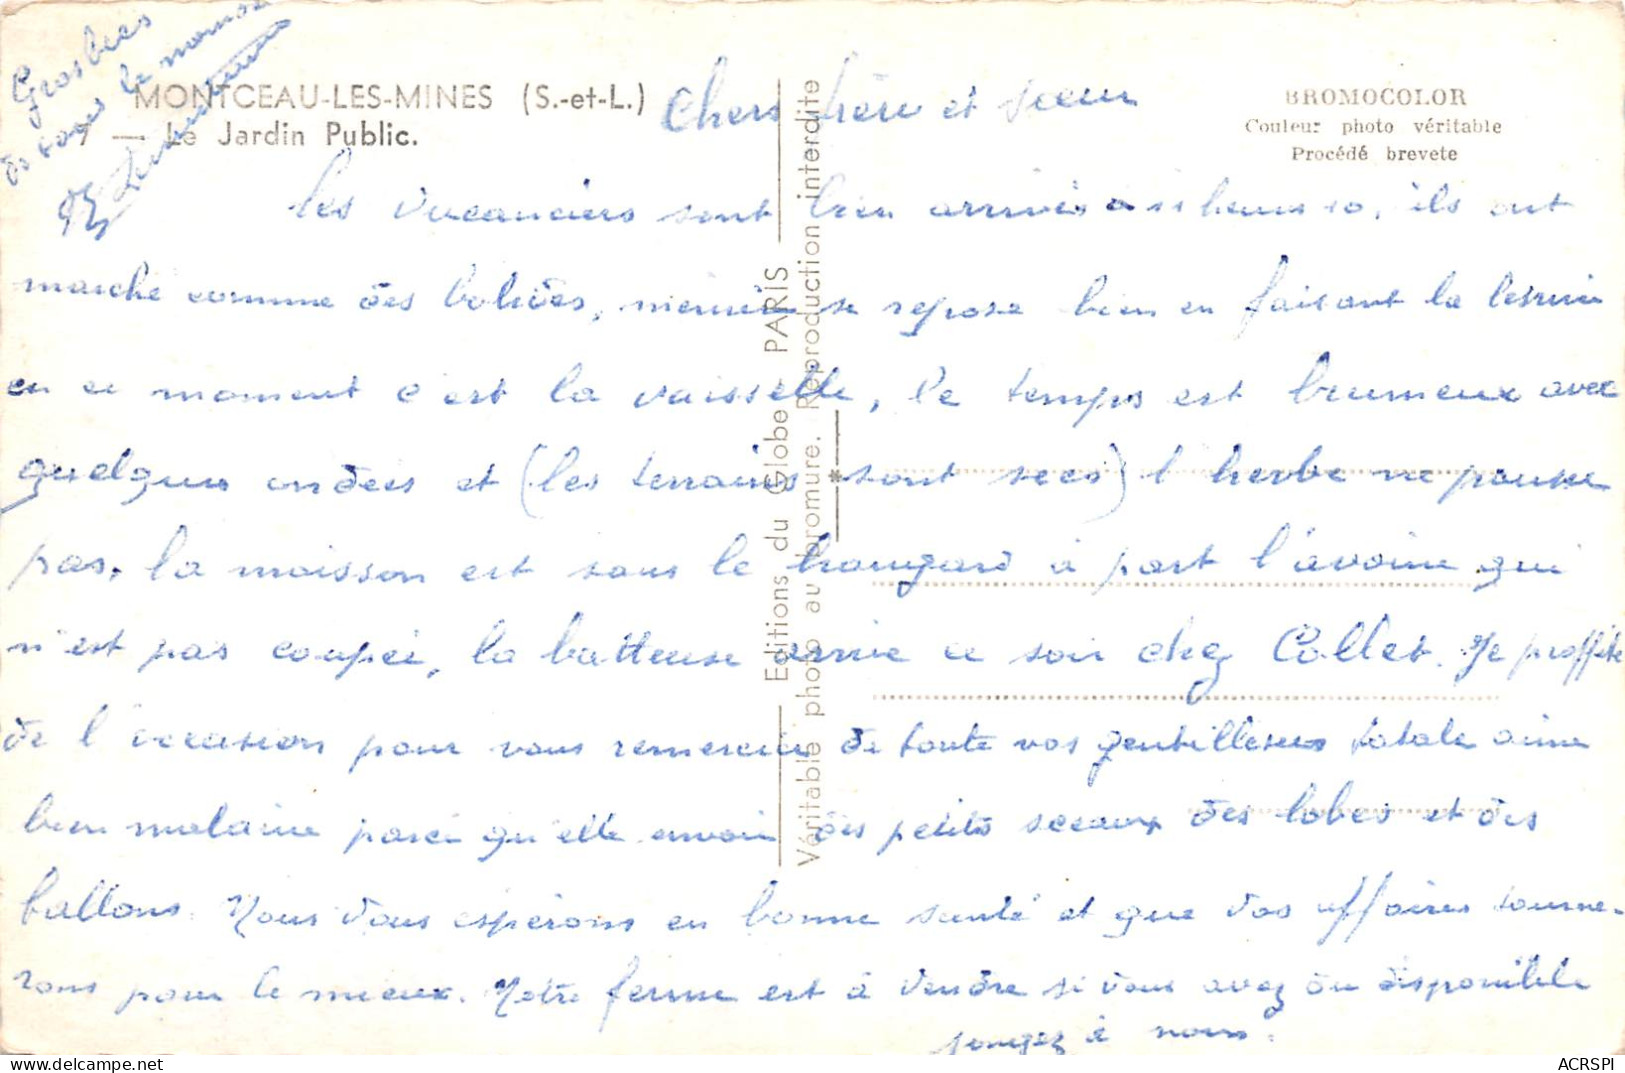 MONTCEAU-LES-MINES (S.-et-L.)
7 — Le Jardin Public.
BROMOCOLOR
Couleur photo véritable
Procédé brevete
Editions du Globe PARIS
Véritable photo au bromure. Reproduction interdite
Chers frère et sœur
les vacanciers sont bien arrivés à heures 10, ils ont
marche comme des bolides, se repose bien en faisant la
en ce moment c'est la vaisselle, le temps est brumeux avec
quelques ondées et (les terrains sont secs) l'herbe ne pousse
pas, la moisson est sous le hangard à part l'avoine qui
n'est pas coupée, la batteuse arrive ce soir chez Collet. Je profite
de l'occasion pour vous remercie de toute vos gentillesses aime
bien parce qu'elle envoie des petits sceaux des lobes et des
ballons. Nous vous espérons en bonne santé et que vos affaires tourne-
rons pour le mieux. Notre ferme est à vendre si vous avez du disponible
songez à nous.
Gros bises
de tous le monde
ACRSPI